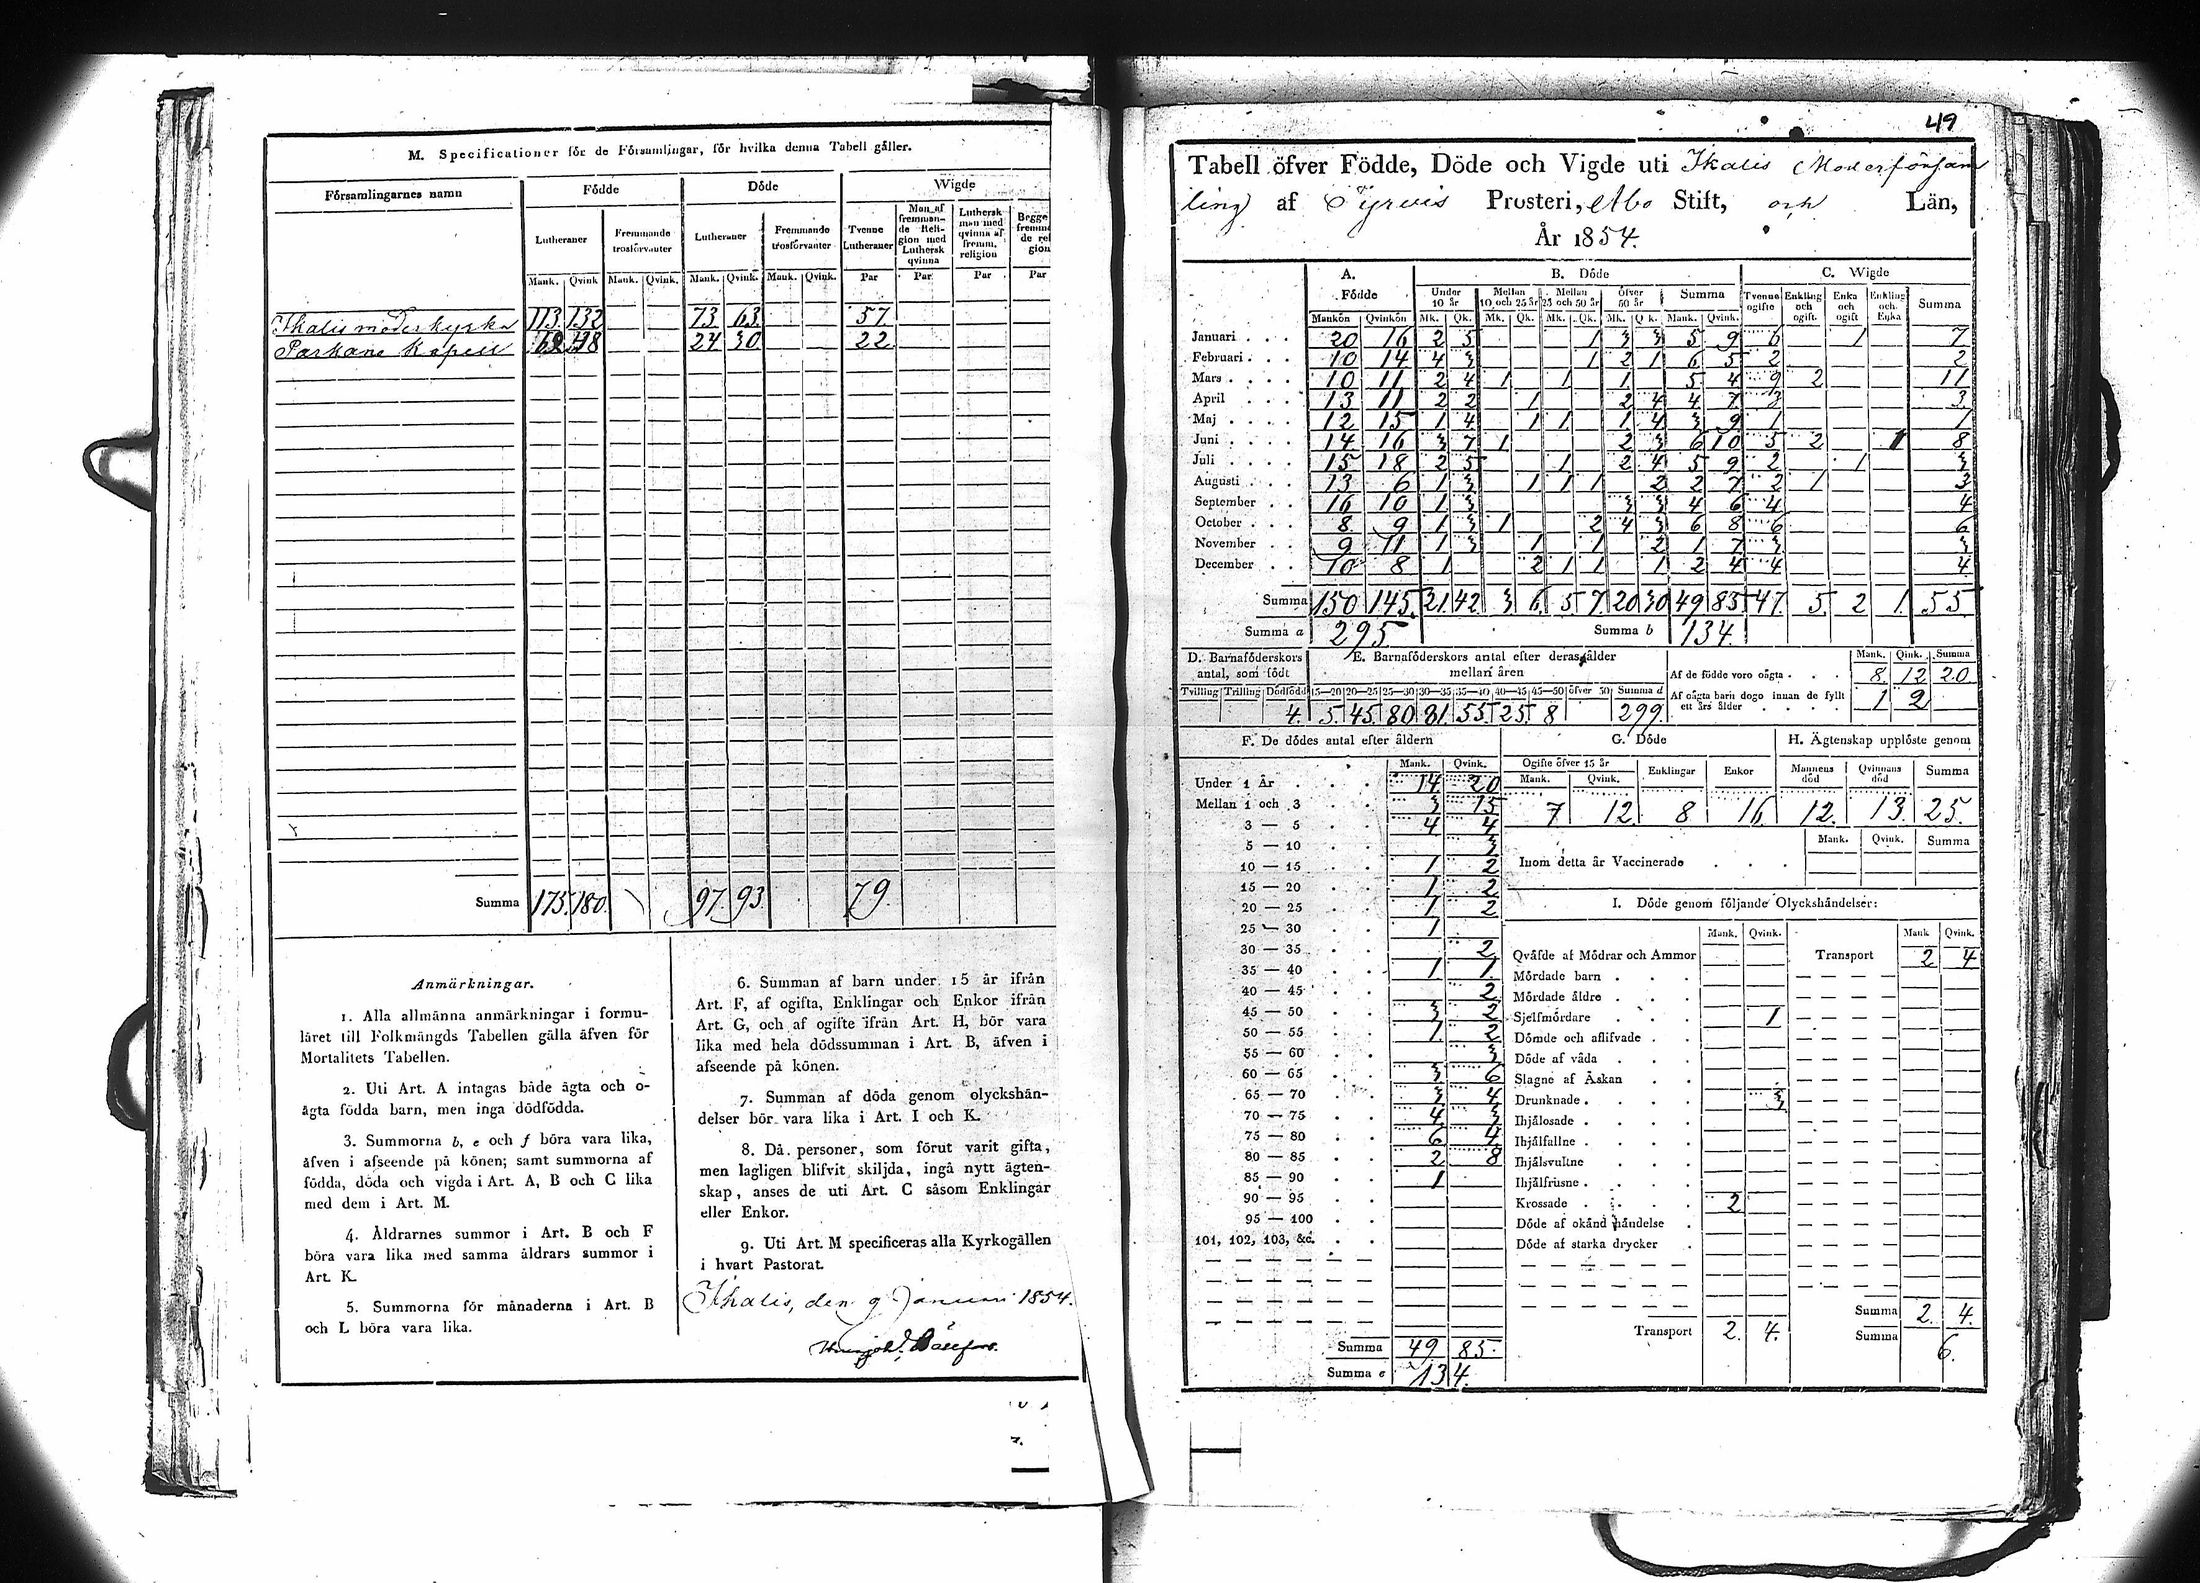 M. Specificationer för de Församlingar, för hvilka denna Tabell gäller.
Församlingarnes namn Födde Döde Wigde
Lutheraner Fremmande trosförvanter Lutheraner Fremmande trosförvanter Tvenne Lutheraner Man af fremmande Religion med Luthersk qvinna Luthersk man med qvinna af fremm. religion Begge fremmande religion
Mank. Qvink Mank. Qvink. Mank. Qvink. Mank. Qvink. Par Par Par Par
Ikalis moderkyrka 113. 132 73 63 57
Parkano Kapell 62 48 24 30 22
Summa 175. 180. 97. 93. 79.
Anmärkningar.
1. Alla allmänna anmärkningar i formu-
läret till Folkmängds Tabellen gälla äfven för
Mortalitets Tabellen.
2. Uti Art. A intagas både ägta och o-
ägta födda barn, men inga dödfödda.
3. Summorna b, e och f böra vara lika,
äfven i afseende på könen; samt summorna af
födda, döda och vigda i Art. A, B och C lika
med dem i Art. M.
4. Åldrarnes summor i Art. B och F
böra vara lika med samma åldrars summor i
Art. K.
5. Summorna för månaderna i Art. B
och L böra vara lika.
6. Summan af barn under 15 år ifrån
Art. F, af ogifta, Enklingar och Enkor ifrån
Art. G, och af ogifte ifrån Art. H, bör vara
lika med hela dödssumman i Art. B, äfven i
afseende på könen.
7. Summan af döda genom olyckshän-
delser bör vara lika i Art. I och K.
8. Då personer, som förut varit gifta,
men lagligen blifvit skiljda, ingå nytt ägten-
skap, anses de uti Art. C såsom Enklingar
eller Enkor.
9. Uti Art. M specificeras alla Kyrkogällen
i hvart Pastorat.
Ikalis, den 9 Januari 1854.
49
Tabell öfver Födde, Döde och Vigde uti Ikalis Moderförsam
ling af Tyrvis Prosteri, Abo Stift, och Län,
År 1854.
A. Födde B. Döde C. Wigde
Under 10 år Mellan 10 och 25 år Mellan 25 och 50 år Öfver 50 år Summa Tvenne ogifte Enkling och ogift. Enka och ogift Enkling och Enka Summa
Mankön Qvinkön Mk. Qk. Mk. Qk. Mk. Qk. Mk. Qk. Mank. Qvink.
Januari 20 16 2 5 1 3 3 5 9 6 1 7
Februari 10 14 4 3 1 2 1 6 5 2 2
Mars 10 11 2 4 1 1 1 5 4 9 2 11
April 13 11 2 2 1 2 4 4 7 3 3
Maj 12 15 1 4 1 1 1 4 3 9 1 1
Juni 14 16 3 7 1 2 3 6 10 5 2 1 8
Juli 15 18 2 5 1 2 4 5 9 2 1 3
Augusti 13 6 1 3 1 1 1 2 2 7 2 1 3
September 16 10 1 3 3 3 4 6 4 4
October 8 9 1 3 1 2 4 3 6 8 6 6
November 9 11 1 3 1 1 2 1 7 3 3
December 10 8 1 2 1 1 1 2 4 4 4
Summa 150 145. 21. 42 3 6. 5 7. 20 30 49 85 47. 5. 2 1. 55
Summa a 295. Summa b 134.
D. Barnaföderskors antal, som födt
Tvilling Trilling Dödfödd
4.
E. Barnaföderskors antal efter deras ålder mellan åren
15—20 20—25 25—30 30—35 35—40 40—45 45—50 öfver 50 Summa d
5. 45. 80 81. 55. 25. 8 299.
Mank. Qink. Summa
Af de födde voro oägta 8. 12 20.
Af oägta barn dogo innan de fyllt ett års ålder 1 2
F. De dödes antal efter åldern
Mank. Qvink.
Under 1 År 14 20
Mellan 1 och 3 3 15
3 — 5 4 4
5 — 10 3
10 — 15 1 2
15 — 20 1 2
20 — 25 1 2
25 — 30 1
30 — 35 2
35 — 40 1 1
40 — 45 2
45 — 50 3 2
50 — 55 1. 2
55 — 60 3
60 — 65 3 6
65 — 70 3 4
70 — 75 4 3
75 — 80 6 4
80 — 85 2 8
85 — 90 1
90 — 95
95 — 100
101, 102, 103, &c.
Summa 49 85.
Summa e 134.
G. Döde
Ogifte öfver 15 år Enklingar Enkor
Mank. Qvink.
7 12. 8 16
H. Ägtenskap upplöste genom
Mannens död Qvinnans död Summa
12. 13. 25.
Mank. Qvink. Summa
Inom detta år Vaccinerade
I. Döde genom följande Olyckshändelser:
Mank. Qvink. Mank Qvink.
Qväfde af Mödrar och Ammor Transport 2 4
Mördade barn
Mördade äldre
Sjelfmördare 1
Dömde och aflifvade
Döde af våda
Slagne af Åskan
Drunknade 3
Ihjälosade
Ihjälfallne
Ihjälsvultne
Ihjälfrusne
Krossade 2
Döde af okänd händelse
Döde af starka drycker
Summa 2. 4.
Transport 2. 4. Summa 6.